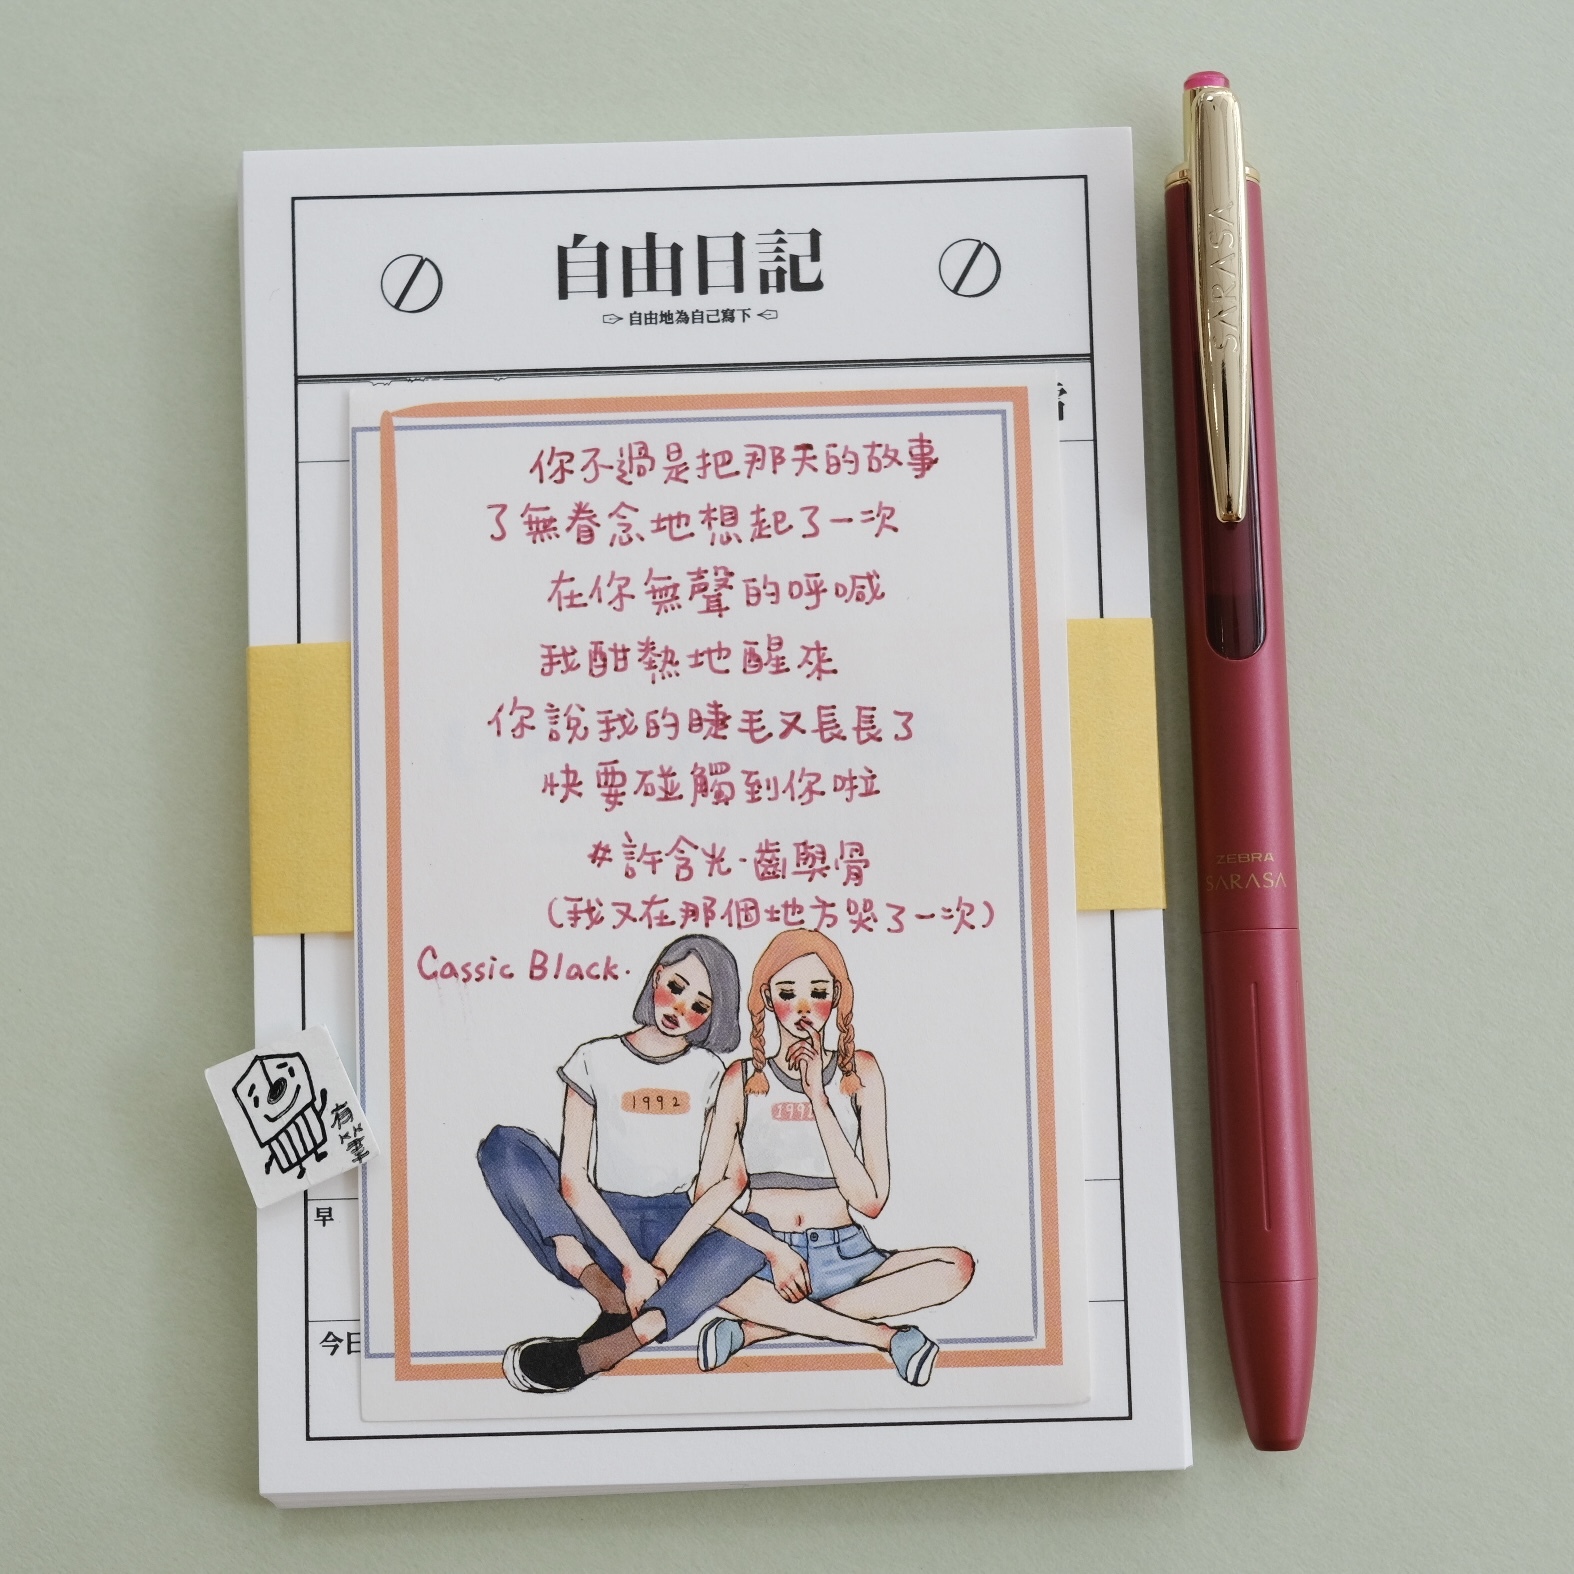 自由日記
自由地為自己寫下
你不過是把那天的故事
了無眷念地想起了一次
在你無聲的呼喊
我酣熱地醒來
你說我的睫毛又長長了
快要碰觸到你啦
#許含光·齒與骨
(我又在那個地方哭了一次)
Cassic Black.
1992
1992
有
早
今日
SARASA
ZEBRA
SARASA